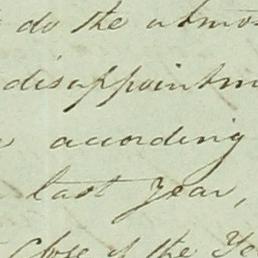 do the utmo
disappointm
according
last Year,
Close of the Ye